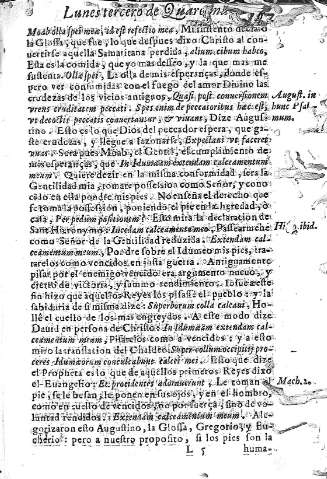 Lunes tercero de Quaresma
Moab olla spei meæ, id est refectio mea, Mi sustento declaró
la Glossa, que fue, lo que despues dixo Christo al con-
uertirse aquella Samaritana perdida, alium cibum habeo,
Esta es la comida, que yo mas deseo, y la que mas me
sustenta. Olla spei, La olla de mis esperanças, donde es-
pero ver consumidas con el fuego del amor Diuino las
crudezas de los vicios antiguos, Quasi post conuersionem
vrens cruditatem peccati. Spes enim de peccatoribus hæc est,
vt decoctis peccatis conuertantur, & viuant, Dize Augus-
tino. Esto es lo que Dios del peccador espera, que ga-
ste crudezas, y llegue a sazonarse, Expectaui vt faceret
vuas. Sera pues Moab, el Gentil, el cumplimiento de
mis esperanças, que In Idumæam extendam calceamentum
meum. Quiere dezir en la misma conformidad, sera la
Gentilidad mia, tomaré possession como Señor, y cono
cido en ella pondré mis pies. No enseña el derecho que
se toma la possession, poniendo el pie en la heredad, ò
casa, Per pedium passionem? Esta mira la declaracion de
Sant Hieronymo: Incedam calceamento meo, Passearme he
como Señor de la Gentilidad reduzida. Extendam cal-
ceamentum meum, Pondré sobre el Idumeo mis pies, tra-
tarelos como vencidos en justa guerra. Antiguamente
pisar por el enemigo vencido era argumento nueuo, y
cierto de victoria, y summo rendimiento. Iosue este
fin hizo que aquellos Reyes los pisasse el pueblo: y la
sabiduria de si misma dize: Superborum colla calcaui, Ho-
llè el cuello de los mas engreydos. A este modo dize
Dauid en persona de Christo: In Idumæam extendam cal-
ceamentum meum, Pisarelos como a vencidos: y a esto
miro la translation del Chaldeo: Super collum occipitij pro-
ceres Idumæorum conculcatione calcei mei. Esto que dize
el Propheta es lo que de aquellos primeros Reyes dixo
el Euangelio: Et procidentes adorauerunt, Le toman el
pie, se le besan, le ponen en sus ojos, y en el hombro,
como en cuello de vencidos, no por fuerça, sino de vo-
luntad rendidos. Extendam calceamentum meum. Ale-
gorizaron esto Augustino, la Glossa, Gregorio, y Eu-
cherio: pero a nuestro proposito, si los pies son la
L 5 huma-
August. in
hunc Psal
mum.
Hi. ibid.
Mach. 2.